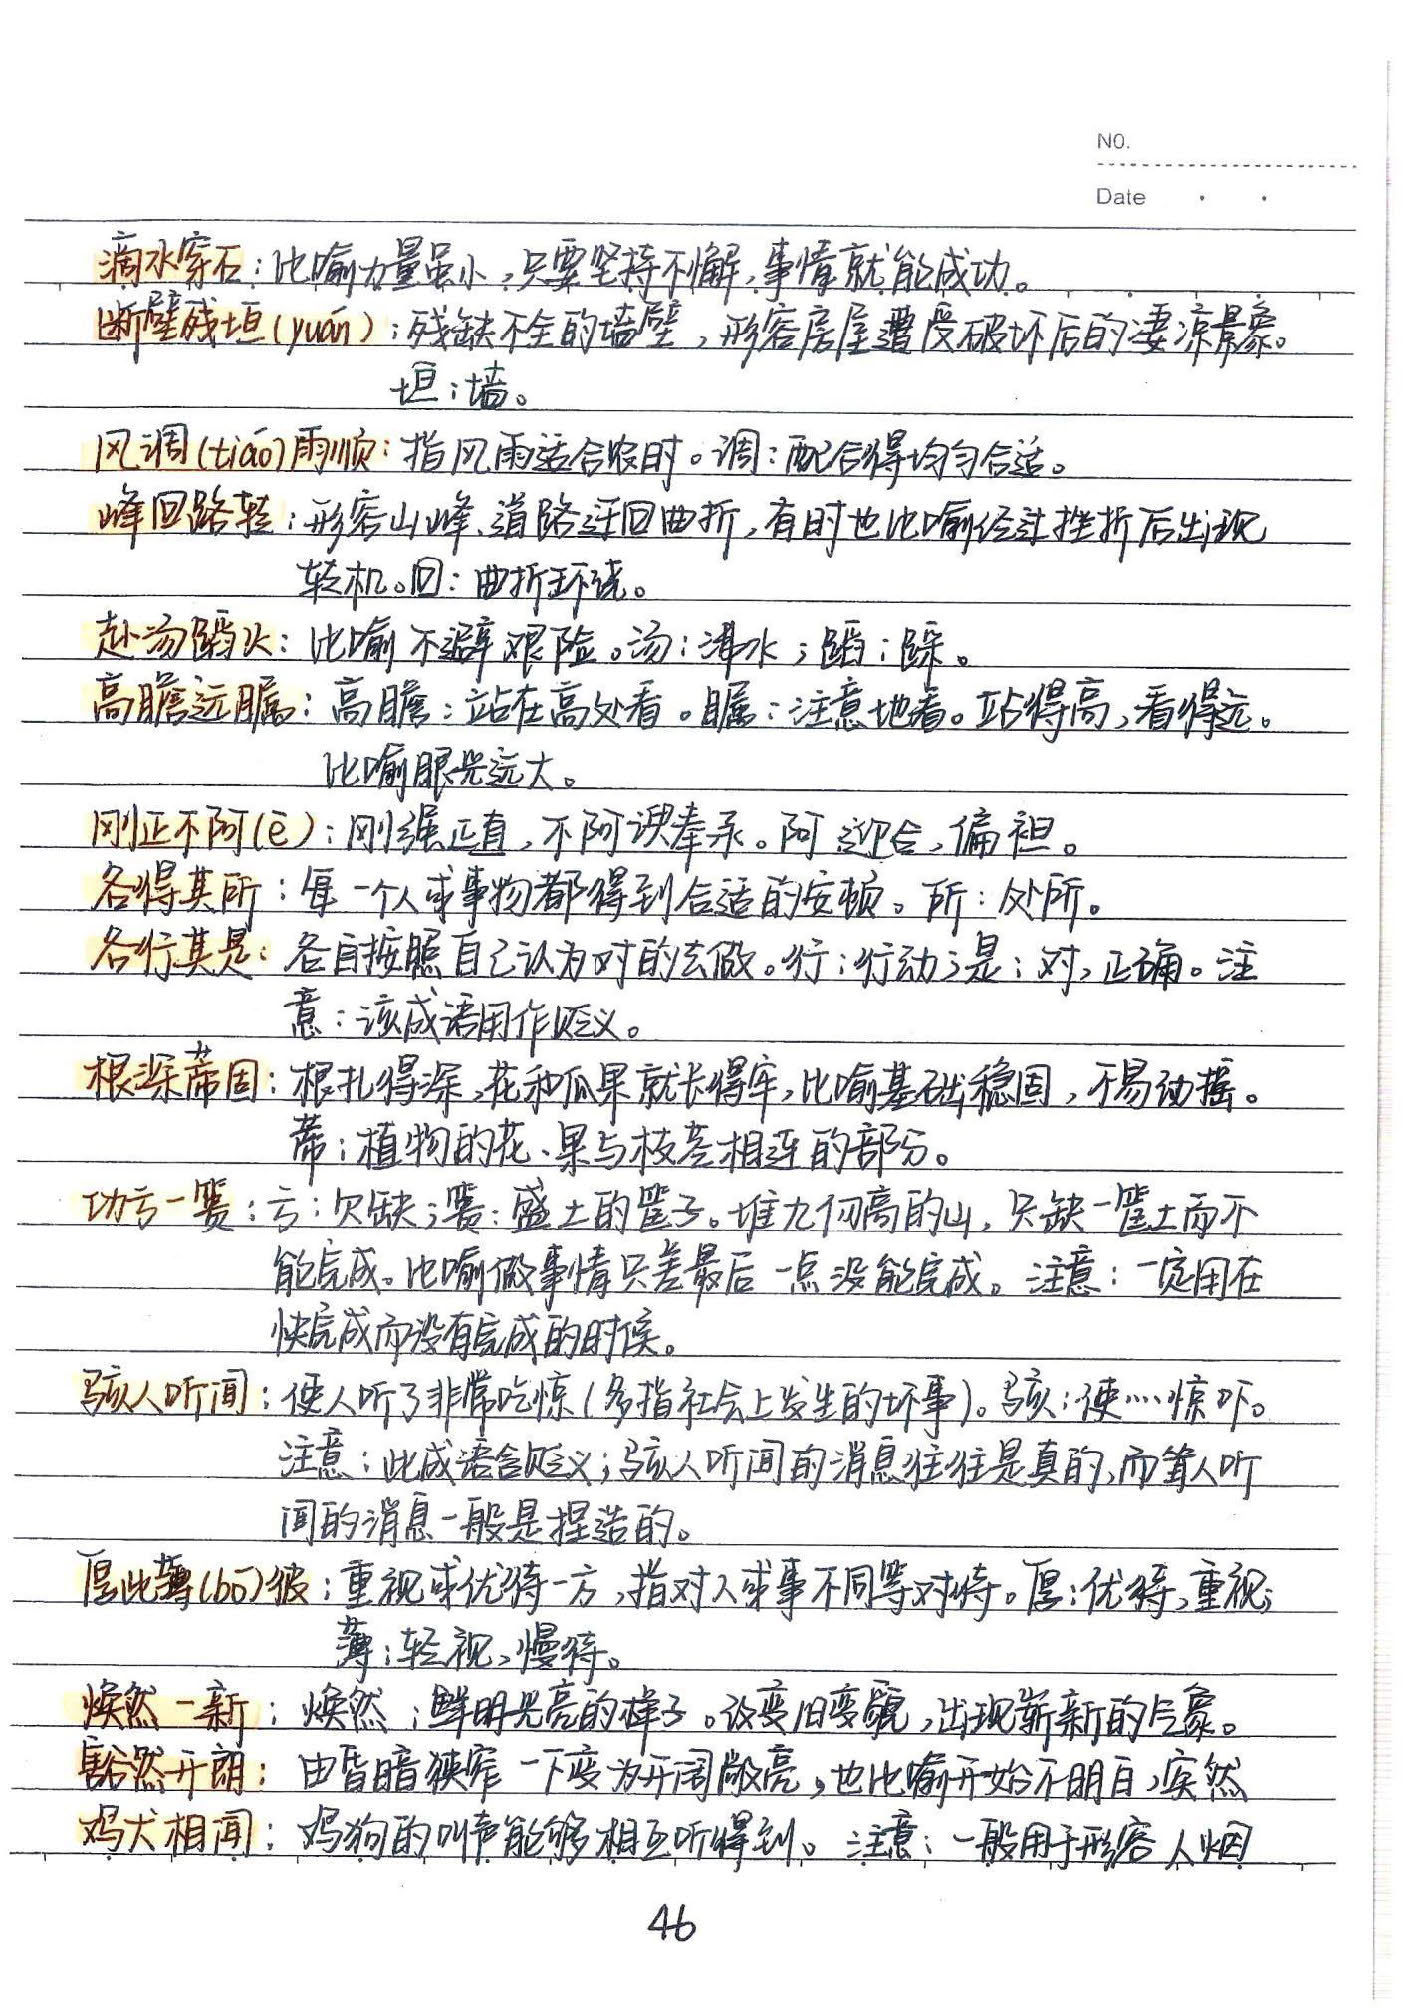 NO.
Date
滴水穿石：比喻力量虽小，只要坚持不懈，事情就能成功。
断壁残垣(yuán)：残缺不全的墙壁，形容房屋遭受破坏后的凄凉景象。
垣：墙。
风调(tiáo)雨顺：指风雨适合农时。调：配合得均匀合适。
峰回路转：形容山峰、道路迂回曲折，有时也比喻经过挫折后出现
转机。回：曲折环绕。
赴汤蹈火：比喻不避艰险。汤：沸水；蹈：踩。
高瞻远瞩：高瞻：站在高处看。瞩：注意地看。站得高，看得远。
比喻眼光远大。
刚正不阿(ē)：刚强正直，不阿谀奉承。阿 迎合，偏袒。
各得其所：每一个人或事物都得到合适的安顿。所：处所。
各行其是：各自按照自己认为对的去做。行：行动；是：对，正确。注
意：该成语用作贬义。
根深蒂固：根扎得深，花和瓜果就长得牢，比喻基础稳固，不易动摇。
蒂：植物的花、果与枝茎相连的部分。
功亏一篑：亏：欠缺；篑：盛土的筐子。堆九仞高的山，只缺一筐土而不
能完成。比喻做事情只差最后一点没能完成。注意：一定用在
快完成而没有完成的时候。
骇人听闻：使人听了非常吃惊(多指社会上发生的坏事)。骇：使……惊吓。
注意：此成语含贬义；骇人听闻的消息往往是真的，而耸人听
闻的消息一般是捏造的。
厚此薄(bó)彼：重视或优待一方，指对人或事不同等对待。厚：优待，重视；
薄：轻视，慢待。
焕然一新：焕然：鲜明光亮的样子。改变旧变貌，出现崭新的气象。
豁然开朗：由昏暗狭窄一下变为开阔敞亮，也比喻开始不明白，突然
鸡犬相闻：鸡狗的叫声能够相互听得到。注意：一般用于形容人烟
46